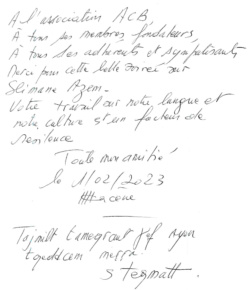 A l'association ACB,
A tous ses membres fondateurs,
A tous ses adhérents et sympathisants
Merci pour cette belle soirée sur
Slimane Azem.
Votre travail sur notre langue et
notre culture est un facteur de
résilience
Toute mon amitié
le 1/02/2023
Tajmilt tameqrant ɣef ayen
txeddmem merra
s teɣmatt.